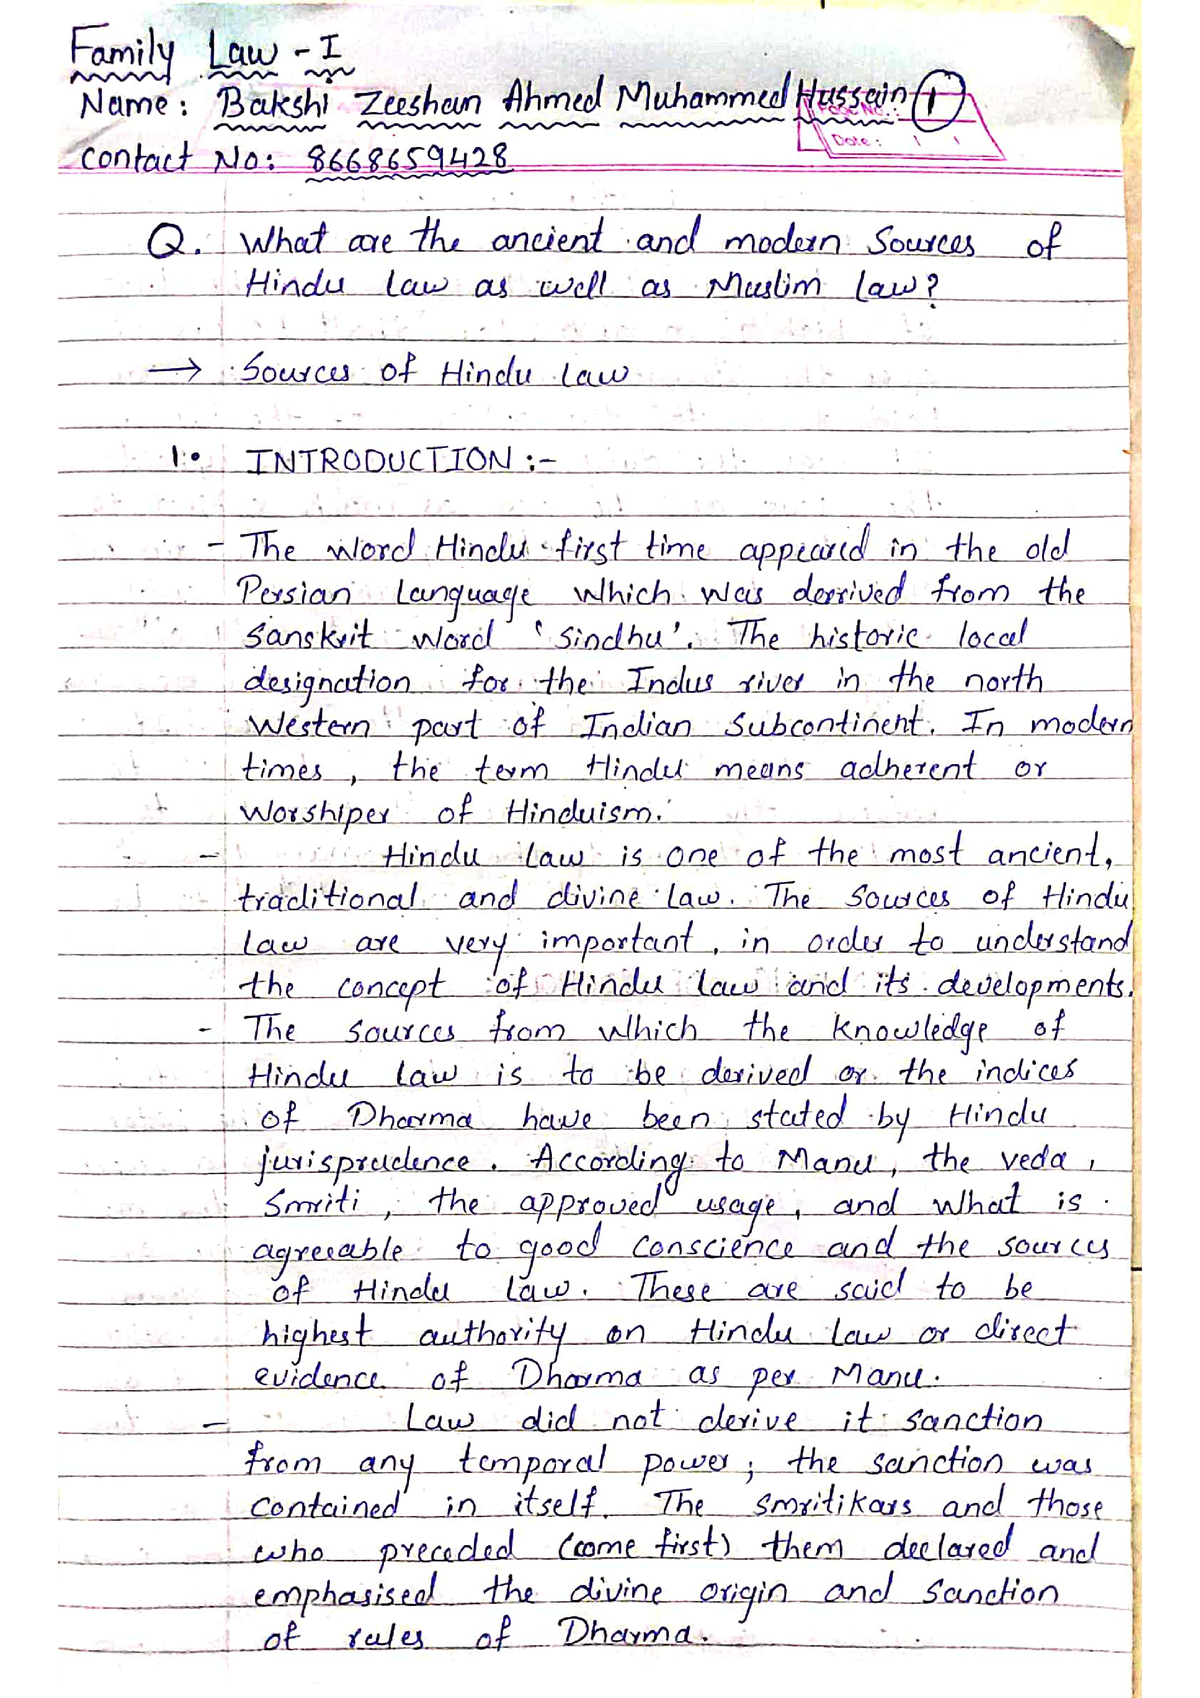 Family Law - I
Name: Bakshi Zeeshan Ahmed Muhammed Hussain 1
Page No.:
Date:
Contact No: 8668659428
Q. What are the ancient and modern Sources of
Hindu law as well as Muslim law?
→ Sources of Hindu law
1. INTRODUCTION :-
- The word Hindu first time appeared in the old
Persian Language which was derrived from the
Sanskrit word 'Sindhu'. The historic local
designation for the Indus river in the north
Western part of Indian Subcontinent. In modern
times, the term Hindu means adherent or
worshiper of Hinduism.
- Hindu law is one of the most ancient,
traditional and divine law. The Sources of Hindu
law are very important, in order to understand
the concept of Hindu law and its developments.
- The sources from which the knowledge of
Hindu law is to be derived or the indices
of Dharma have been stated by Hindu
jurisprudence. According to Manu, the veda,
Smriti, the approved usage, and what is
agreeable to good conscience and the sources
of Hindu law. These are said to be
highest authority on Hindu law or direct
evidence of Dharma as per Manu.
- Law did not derive it sanction
from any temporal power; the sanction was
contained in itself. The smritikars and those
who preceded (come first) them declared and
emphasised the divine origin and sanction
of rules of Dharma.